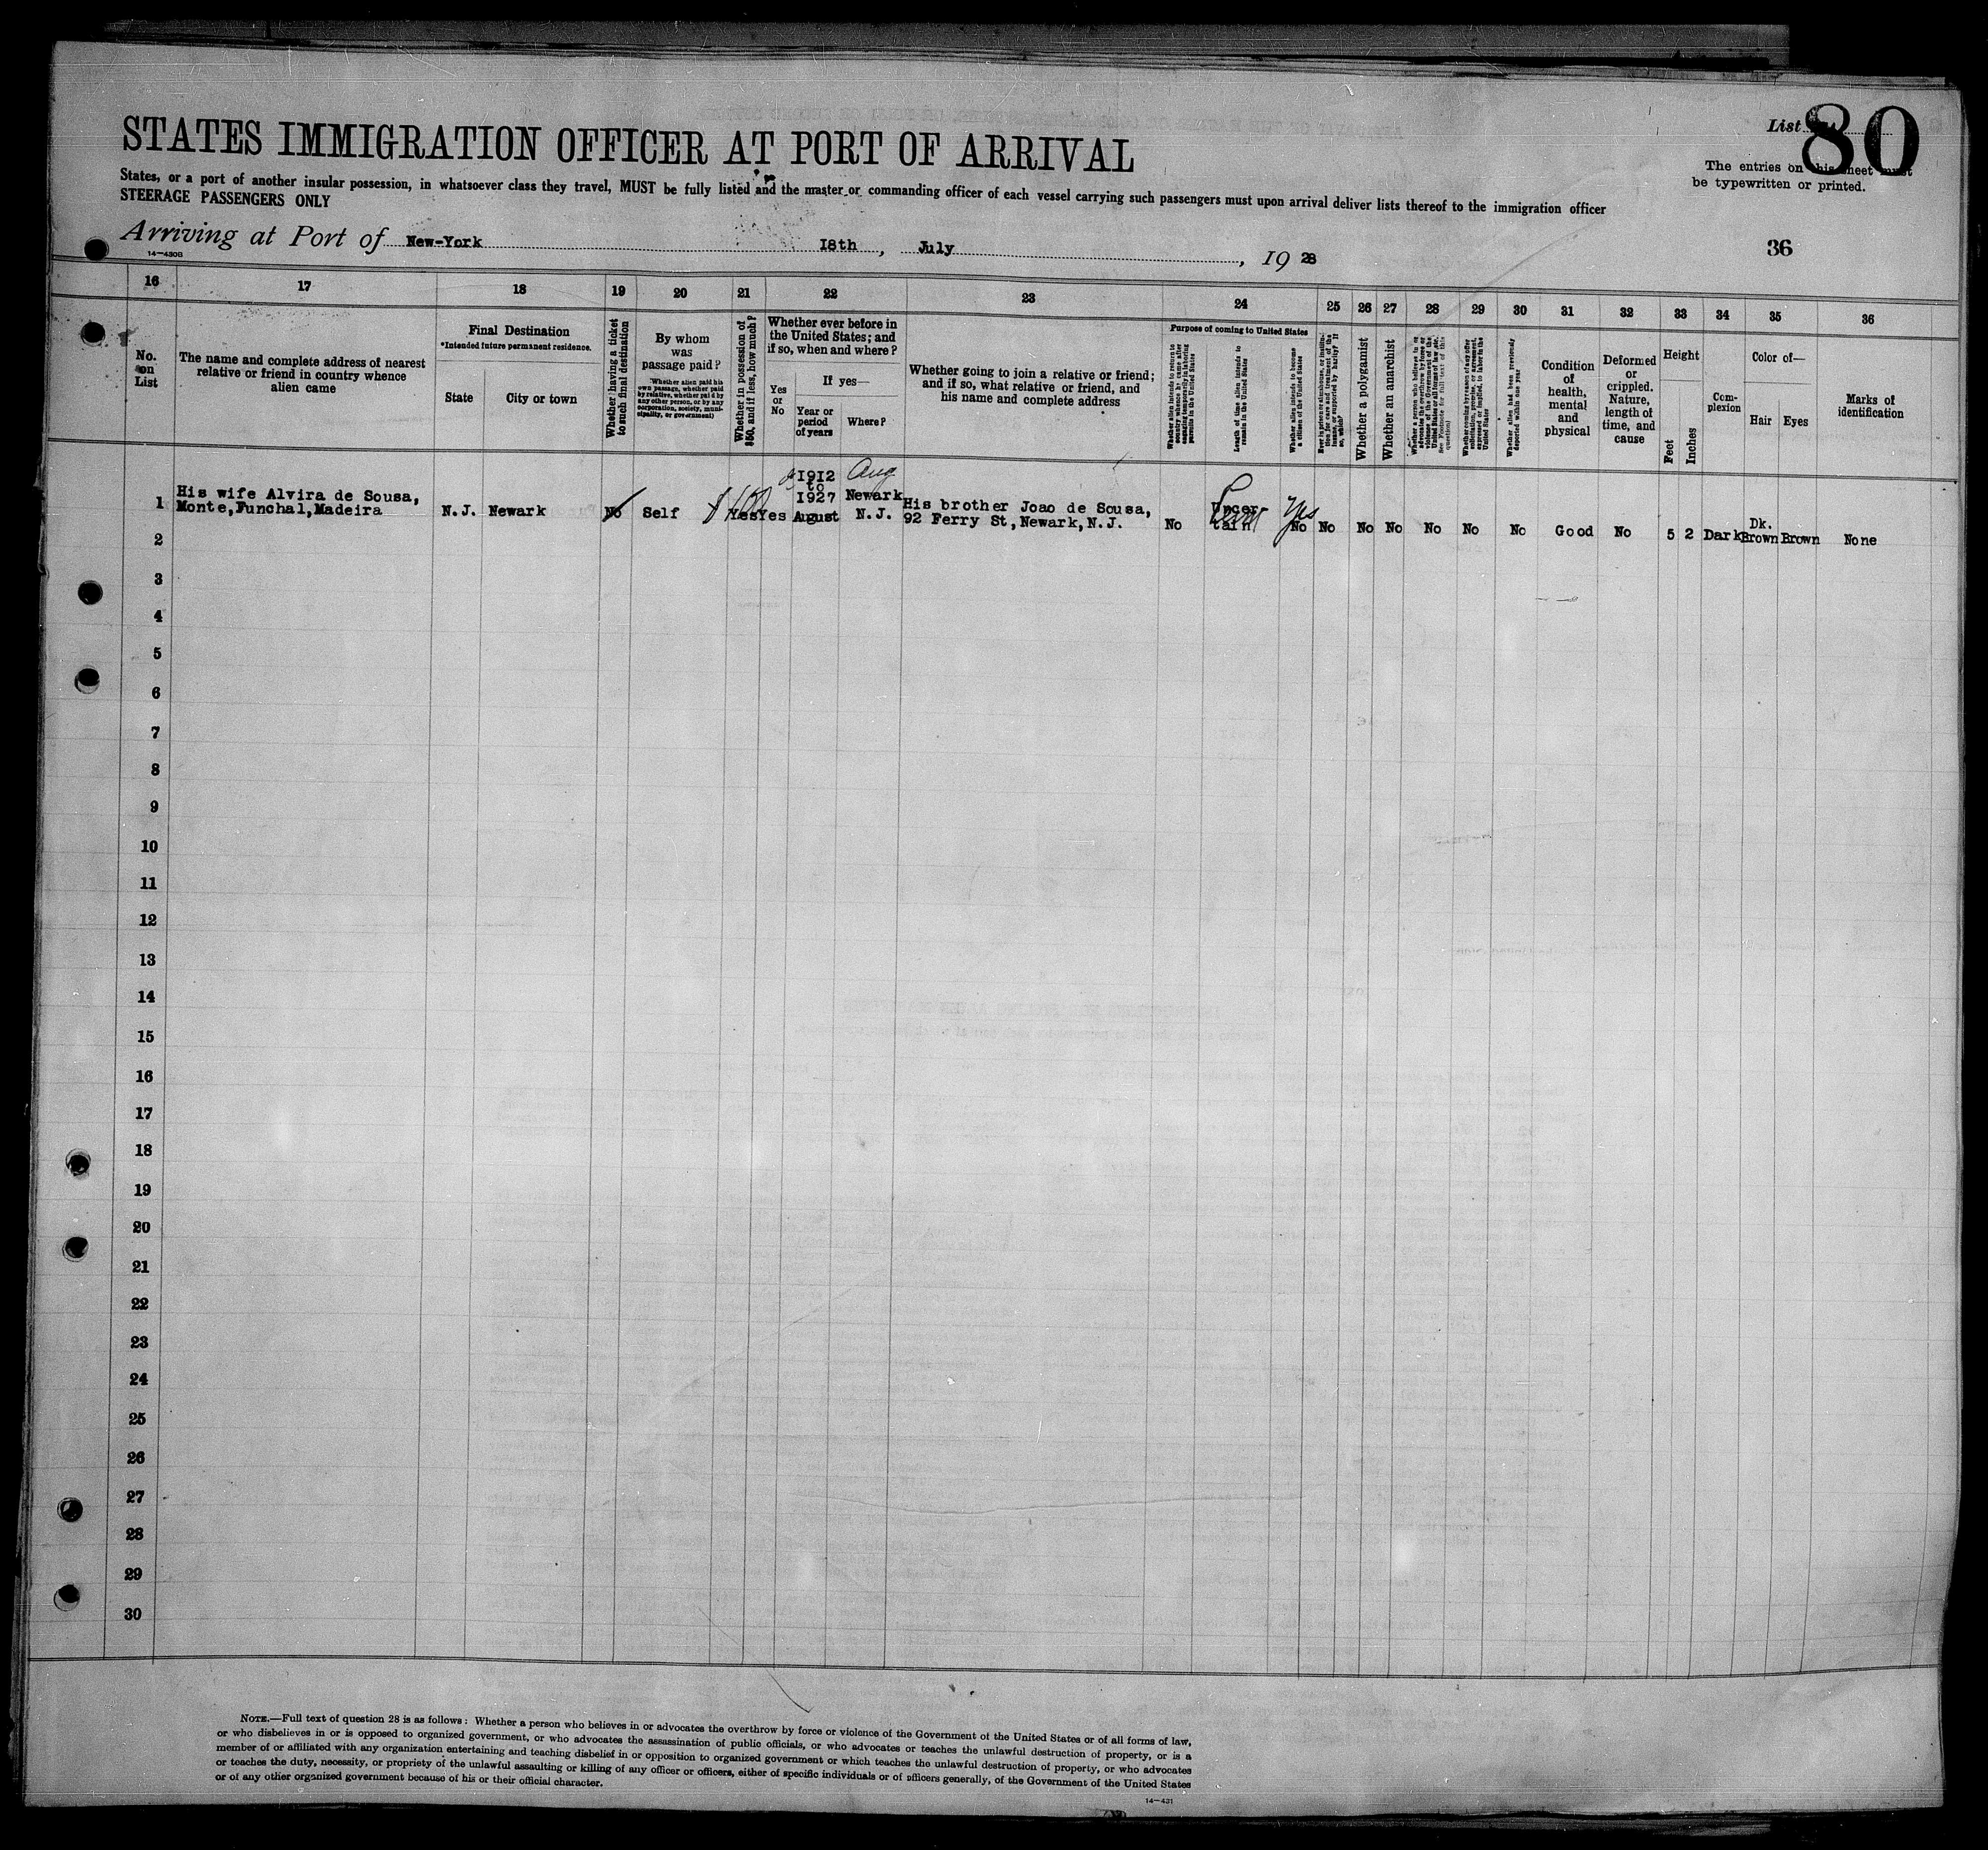 STATES IMMIGRATION OFFICER AT PORT OF ARRIVAL
List
80
The entries on this sheet must
be typewritten or printed.
States, or a port of another insular possession, in whatsoever class they travel, MUST be fully listed and the master or commanding officer of each vessel carrying such passengers must upon arrival deliver lists thereof to the immigration officer
STEERAGE PASSENGERS ONLY
Arriving at Port of New-York 18th, July, 19 28
36
14—430B
16 17 18 19 20 21 22 23 24 25 26 27 28 29 30 31 32 33 34 35 36
No.
on
List
The name and complete address of nearest
relative or friend in country whence
alien came
Final Destination
*Intended future permanent residence.
State
City or town
Whether having a ticket
to such final destination
By whom
was
passage paid?
(Whether alien paid his
own passage, whether paid
by relative, whether paid by
any other person, or by any
corporation, society, muni-
cipality, or government)
Whether in possession of
$50, and if less, how much?
Whether ever before in
the United States; and
if so, when and where?
Yes
or
No
If yes—
Year or
period
of years
Where?
Whether going to join a relative or friend;
and if so, what relative or friend, and
his name and complete address
Purpose of coming to United States
Whether alien intends to return to
country whence he came after
engaging temporarily in laboring
pursuits in the United States
Length of time alien intends to
remain in the United States
Whether alien intends to become
a citizen of the United States
Whether a polygamist
Whether an anarchist
Whether coming by reason of any offer,
solicitation, promise, or agreement,
expressed or implied, to labor in the
United States
Whether alien had been previously
deported within one year
Condition
of
health,
mental
and
physical
Deformed
or
crippled.
Nature,
length of
time, and
cause
Height
Feet
Inches
Com-
plexion
Color of—
Hair
Eyes
Marks of
identification
1912 Aug
to
1927 Newark
August N.J.
1 His wife Alvira de Sousa,
Monte,Funchal,Madeira
N.J. Newark No Self Yes Yes
His brother Joao de Sousa,
92 Ferry St,Newark,N.J.
No
Uncer
tain
Yes
No No No No No No No Good No 5 2 Dark
Dk.
Brown Brown None
2
3
4
5
6
7
8
9
10
11
12
13
14
15
16
17
18
19
20
21
22
23
24
25
26
27
28
29
30
NOTE.—Full text of question 28 is as follows: Whether a person who believes in or advocates the overthrow by force or violence of the Government of the United States or of all forms of law,
or who disbelieves in or is opposed to organized government, or who advocates the assassination of public officials, or who advocates or teaches the unlawful destruction of property, or is a
member of or affiliated with any organization entertaining and teaching disbelief in or opposition to organized government or which teaches the unlawful destruction of property, or who advocates
or teaches the duty, necessity, or propriety of the unlawful assaulting or killing of any officer or officers, either of specific individuals or of officers generally, of the Government of the United States
or of any other organized government because of his or their official character.
14—431